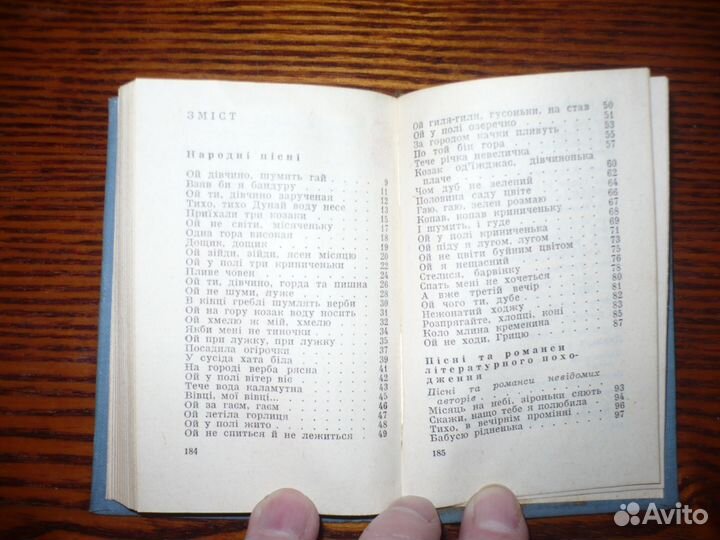 ЗМІСТ
Народні пісні
Ой дівчино, шумить гай . . . . 9
Взяв би я бандуру . . . . 11
Ой ти, дівчино заручена . . . 12
Тихо, тихо Дунай воду несе . . 13
Приїхали три козаки . . . . 15
Ой не світи, місяченьку . . . 17
Одна гора високая . . . . 18
Дощик, дощик . . . . 19
Ой зійди, зійди, ясен місяцю . . 20
Ой у полі три криниченьки . . 22
Пливе човен . . . . 24
Ой ти, дівчино, горда та пишна . 26
Ой не шуми, луже . . . . 28
В кінці греблі шумлять верби . 30
Ой на гору козак воду носить . 31
Ой хмелю ж мій, хмелю . . . 32
Якби мені не тиночки . . . 34
Ой при лужку, при лужку . . 35
Посадила огірочки . . . . 37
У сусіда хата біла . . . . 39
На городі верба рясна . . . 41
Ой у полі вітер віє . . . . 42
Тече вода каламутна . . . 43
Вівці, мої вівці... . . . . 45
Ой за гаєм, гаєм . . . . 46
Ой летіла горлиця . . . . 47
Ой у полі жито . . . . 48
Ой не спиться й не лежиться . 49
184
Ой гиля-гиля, гусоньки, на став 50
Ой у полі озеречко . . . . 51
За городом качки пливуть . . 53
По той бік гора . . . . 55
Тече річка невеличка . . . 57
Козак од'їжджає, дівчинонька
плаче . . . . 60
Чом дуб не зелений . . . . 62
Половина саду цвіте . . . . 64
Гаю, гаю, зелен розмаю . . . 66
Копав, копав криниченьку . . 67
І шумить, і гуде . . . . 68
Ой у полі криниченька . . . 69
Ой піду я лугом, лугом . . . 71
Ой не цвіти буйним цвітом . . 73
Ой я нещасний . . . . 75
Стелися, барвінку . . . . 76
Спать мені не хочеться . . . 78
А вже третій вечір . . . . 80
Ой чого ти, дубе . . . . 81
Нежонатий ходжу . . . . 82
Розпрягайте, хлопці, коні . . 83
Коло млина кременина . . . 85
Ой не ходи, Грицю . . . . 87
Пісні та романси
літературного похо-
дження
Пісні та романси невідомих
авторів
Місяць на небі, зіроньки сяють 93
Скажи, нащо тебе я полюбила . 94
Тихо, в вечірнім промінні . . 96
Бабусю рідненька . . . . 97
185
Avito